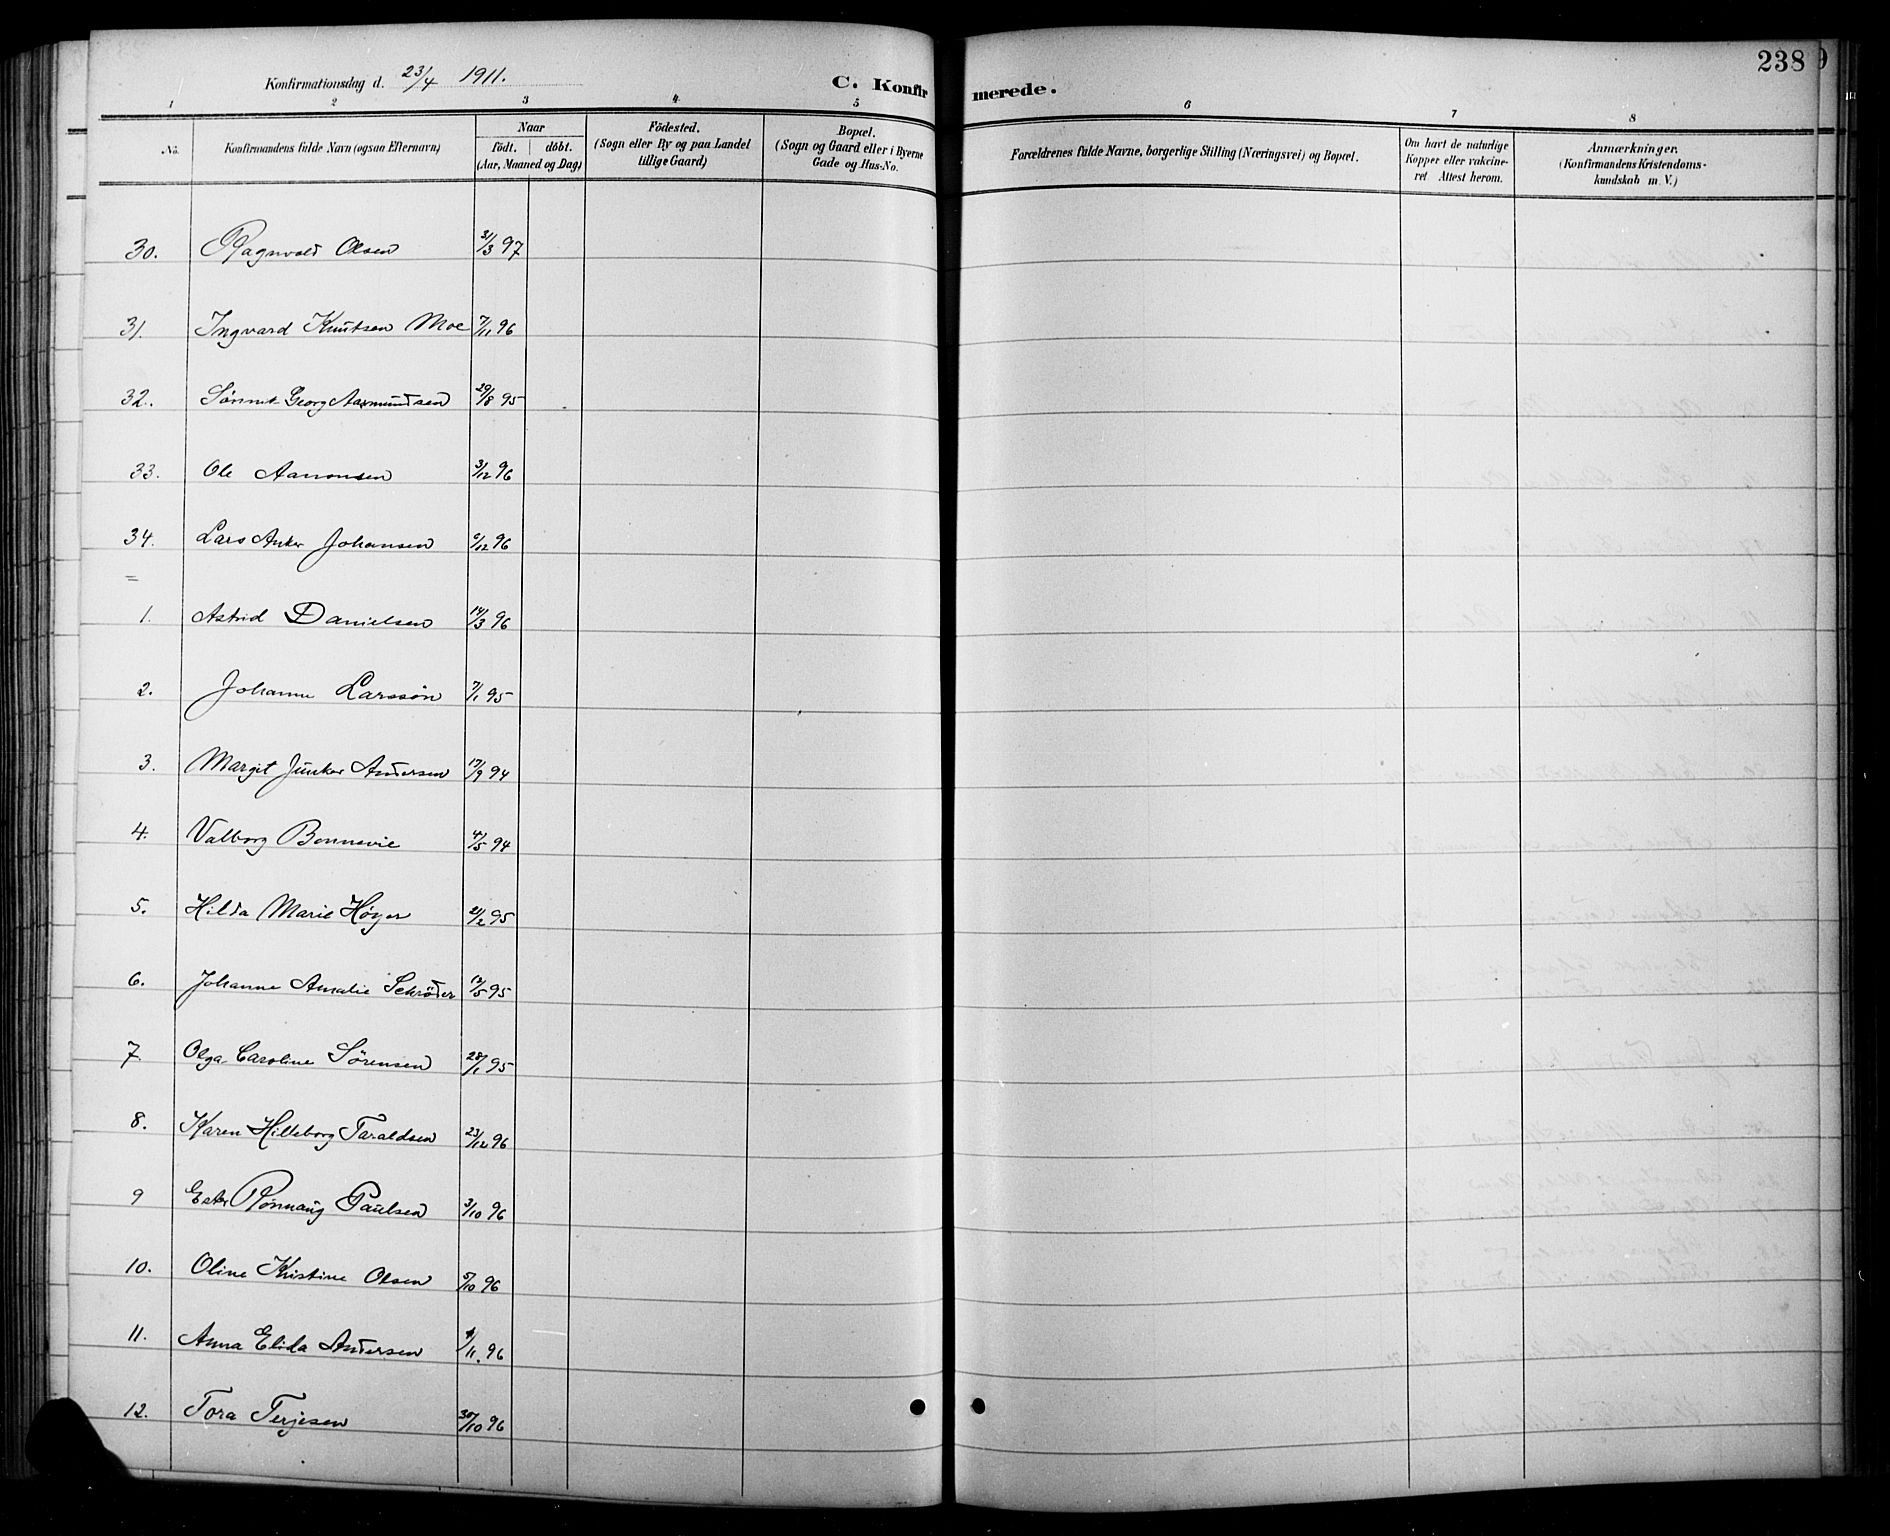 238
Konfirmationsdag d. 23/4 1911.
C. Konfirmerede.
1 2 3 4 5 6 7 8
No.
Konfirmandens fulde Navn (ogsaa Efternavn)
Naar
födt. döbt.
(Aar, Maaned og Dag)
Födested.
(Sogn eller By og paa Landet
tillige Gaard)
Bopæl.
(Sogn og Gaard eller i Byerne
Gade og Hus-No.
Forældrenes fulde Navne, borgerlige Stilling (Næringsvei) og Bopæl.
Om havt de naturlige
Kopper eller vakcine-
ret Attest herom.
Anmærkninger.
(Konfirmandens Kristendoms-
kundskab m. V.)
30. Ragnvald Olsen 31/3 97
31. Ingvard Knutsen Moe 7/11 96
32. Georg Aasmundsen 29/8 95
33. Ole Aanonsen 3/12 96
34. Lars Anker Johansen 6/12 96
=
1. Astrid Danielsen 14/3 96
2. Johanne Larssön 7/1 95
3. Margit Junker Andersen 17/9 94
4. Valborg Bonnevie 4/5 94
5. Hilda Marie Høyer 21/2 95
6. Johanne Amalie Schrøder 12/5 95
7 Olga Caroline Sörensen 28/1 95
8. Karen Hilleborg Taraldsen 23/12 96
9 Ester Rønnaug Paulsen 3/10 96
10. Oline Kristine Olsen 5/10 96
11. Anna Elida Andersen 1/11. 96
12. Tora Terjesen 30/10 96